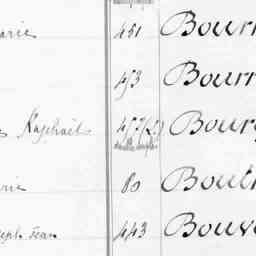 arie 451 Bour
453 Bourr
Raphaël 457(2) Bour
rie 80 Bout
seph Jean 443 Bouv